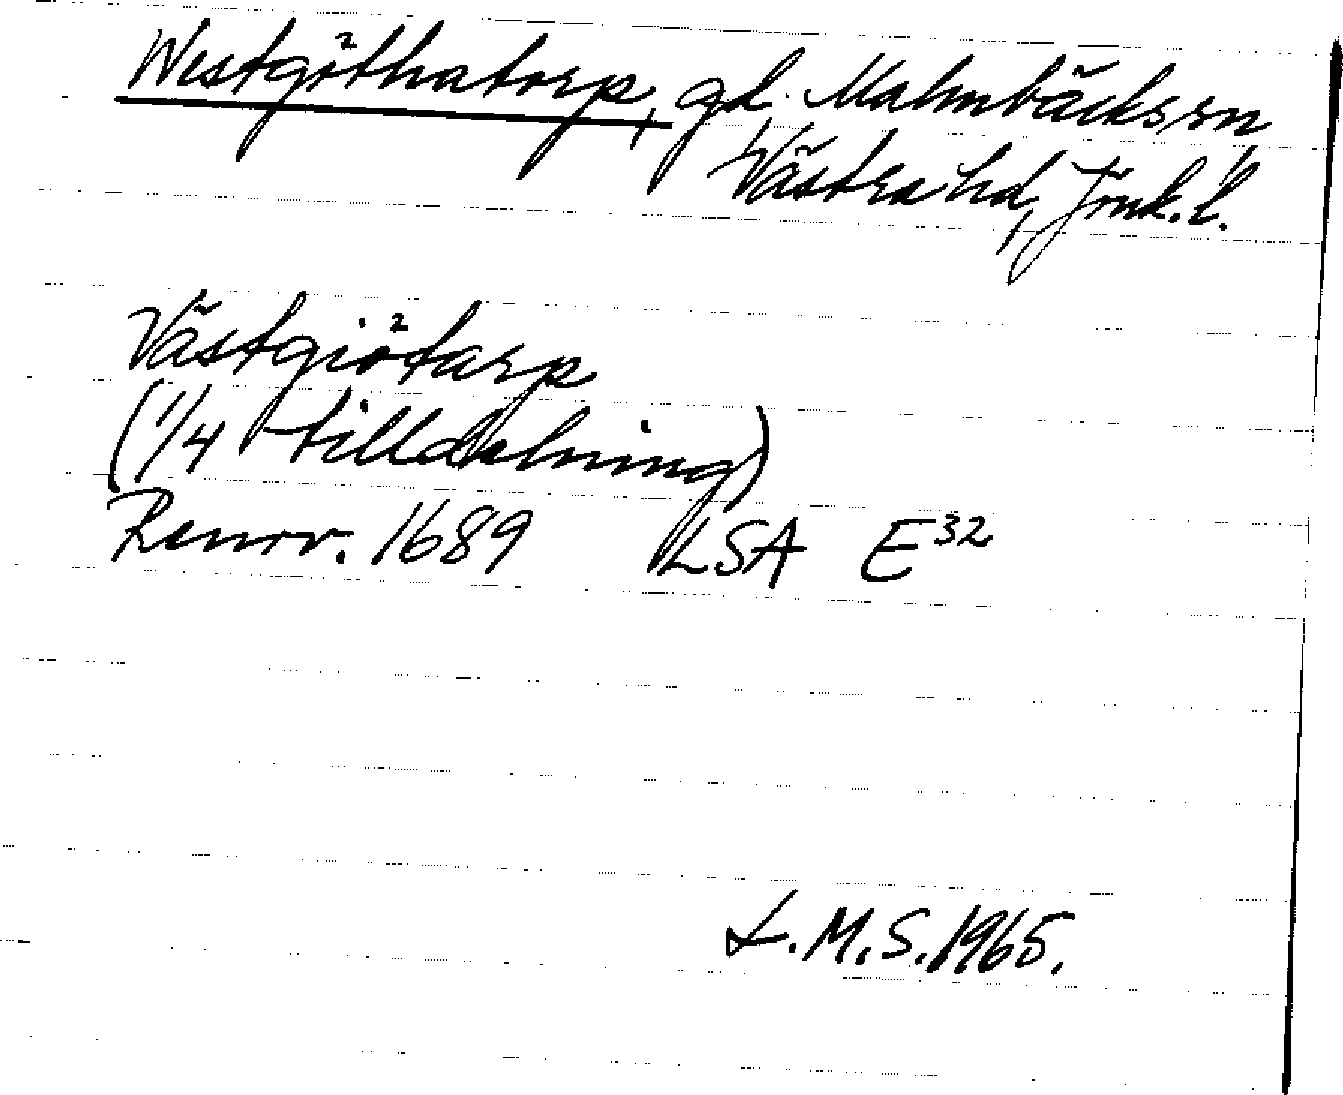 Westgöthatorp, gd. Malmbäcks sn
Västra hd, Jönk. l.
Västgiötarp
(1/4 tilldelning)
Renov. 1689 LSA E32
L.M.S. 1965.